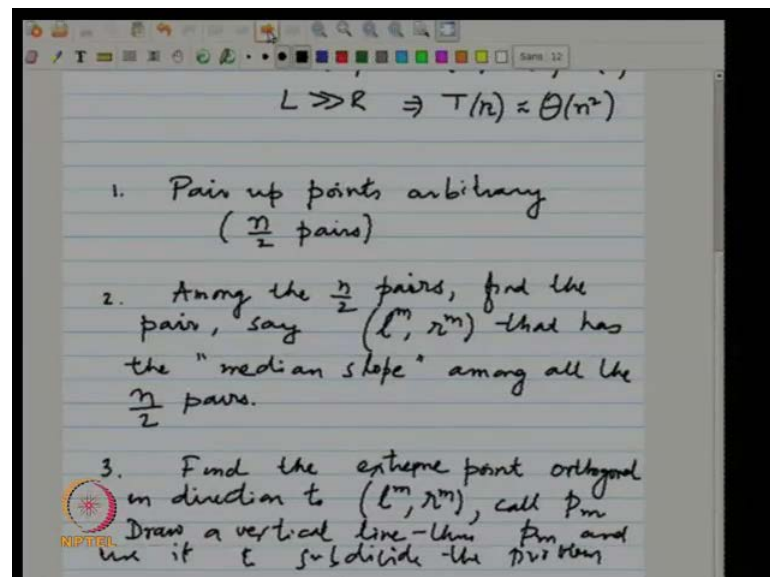 Sans 12
L >> R ⇒ T(n) ≈ Θ(n²)
1. Pair up points arbitrary
( n/2 pairs)
2. Among the n/2 pairs, find the
pair, say (lᵐ, rᵐ) that has
the "median slope" among all the
n/2 pairs.
3. Find the extreme point orthogonal
in direction to (lᵐ, rᵐ), call pₘ
Draw a vertical line thru pₘ and
use it t subdivide the problem
NPTEL